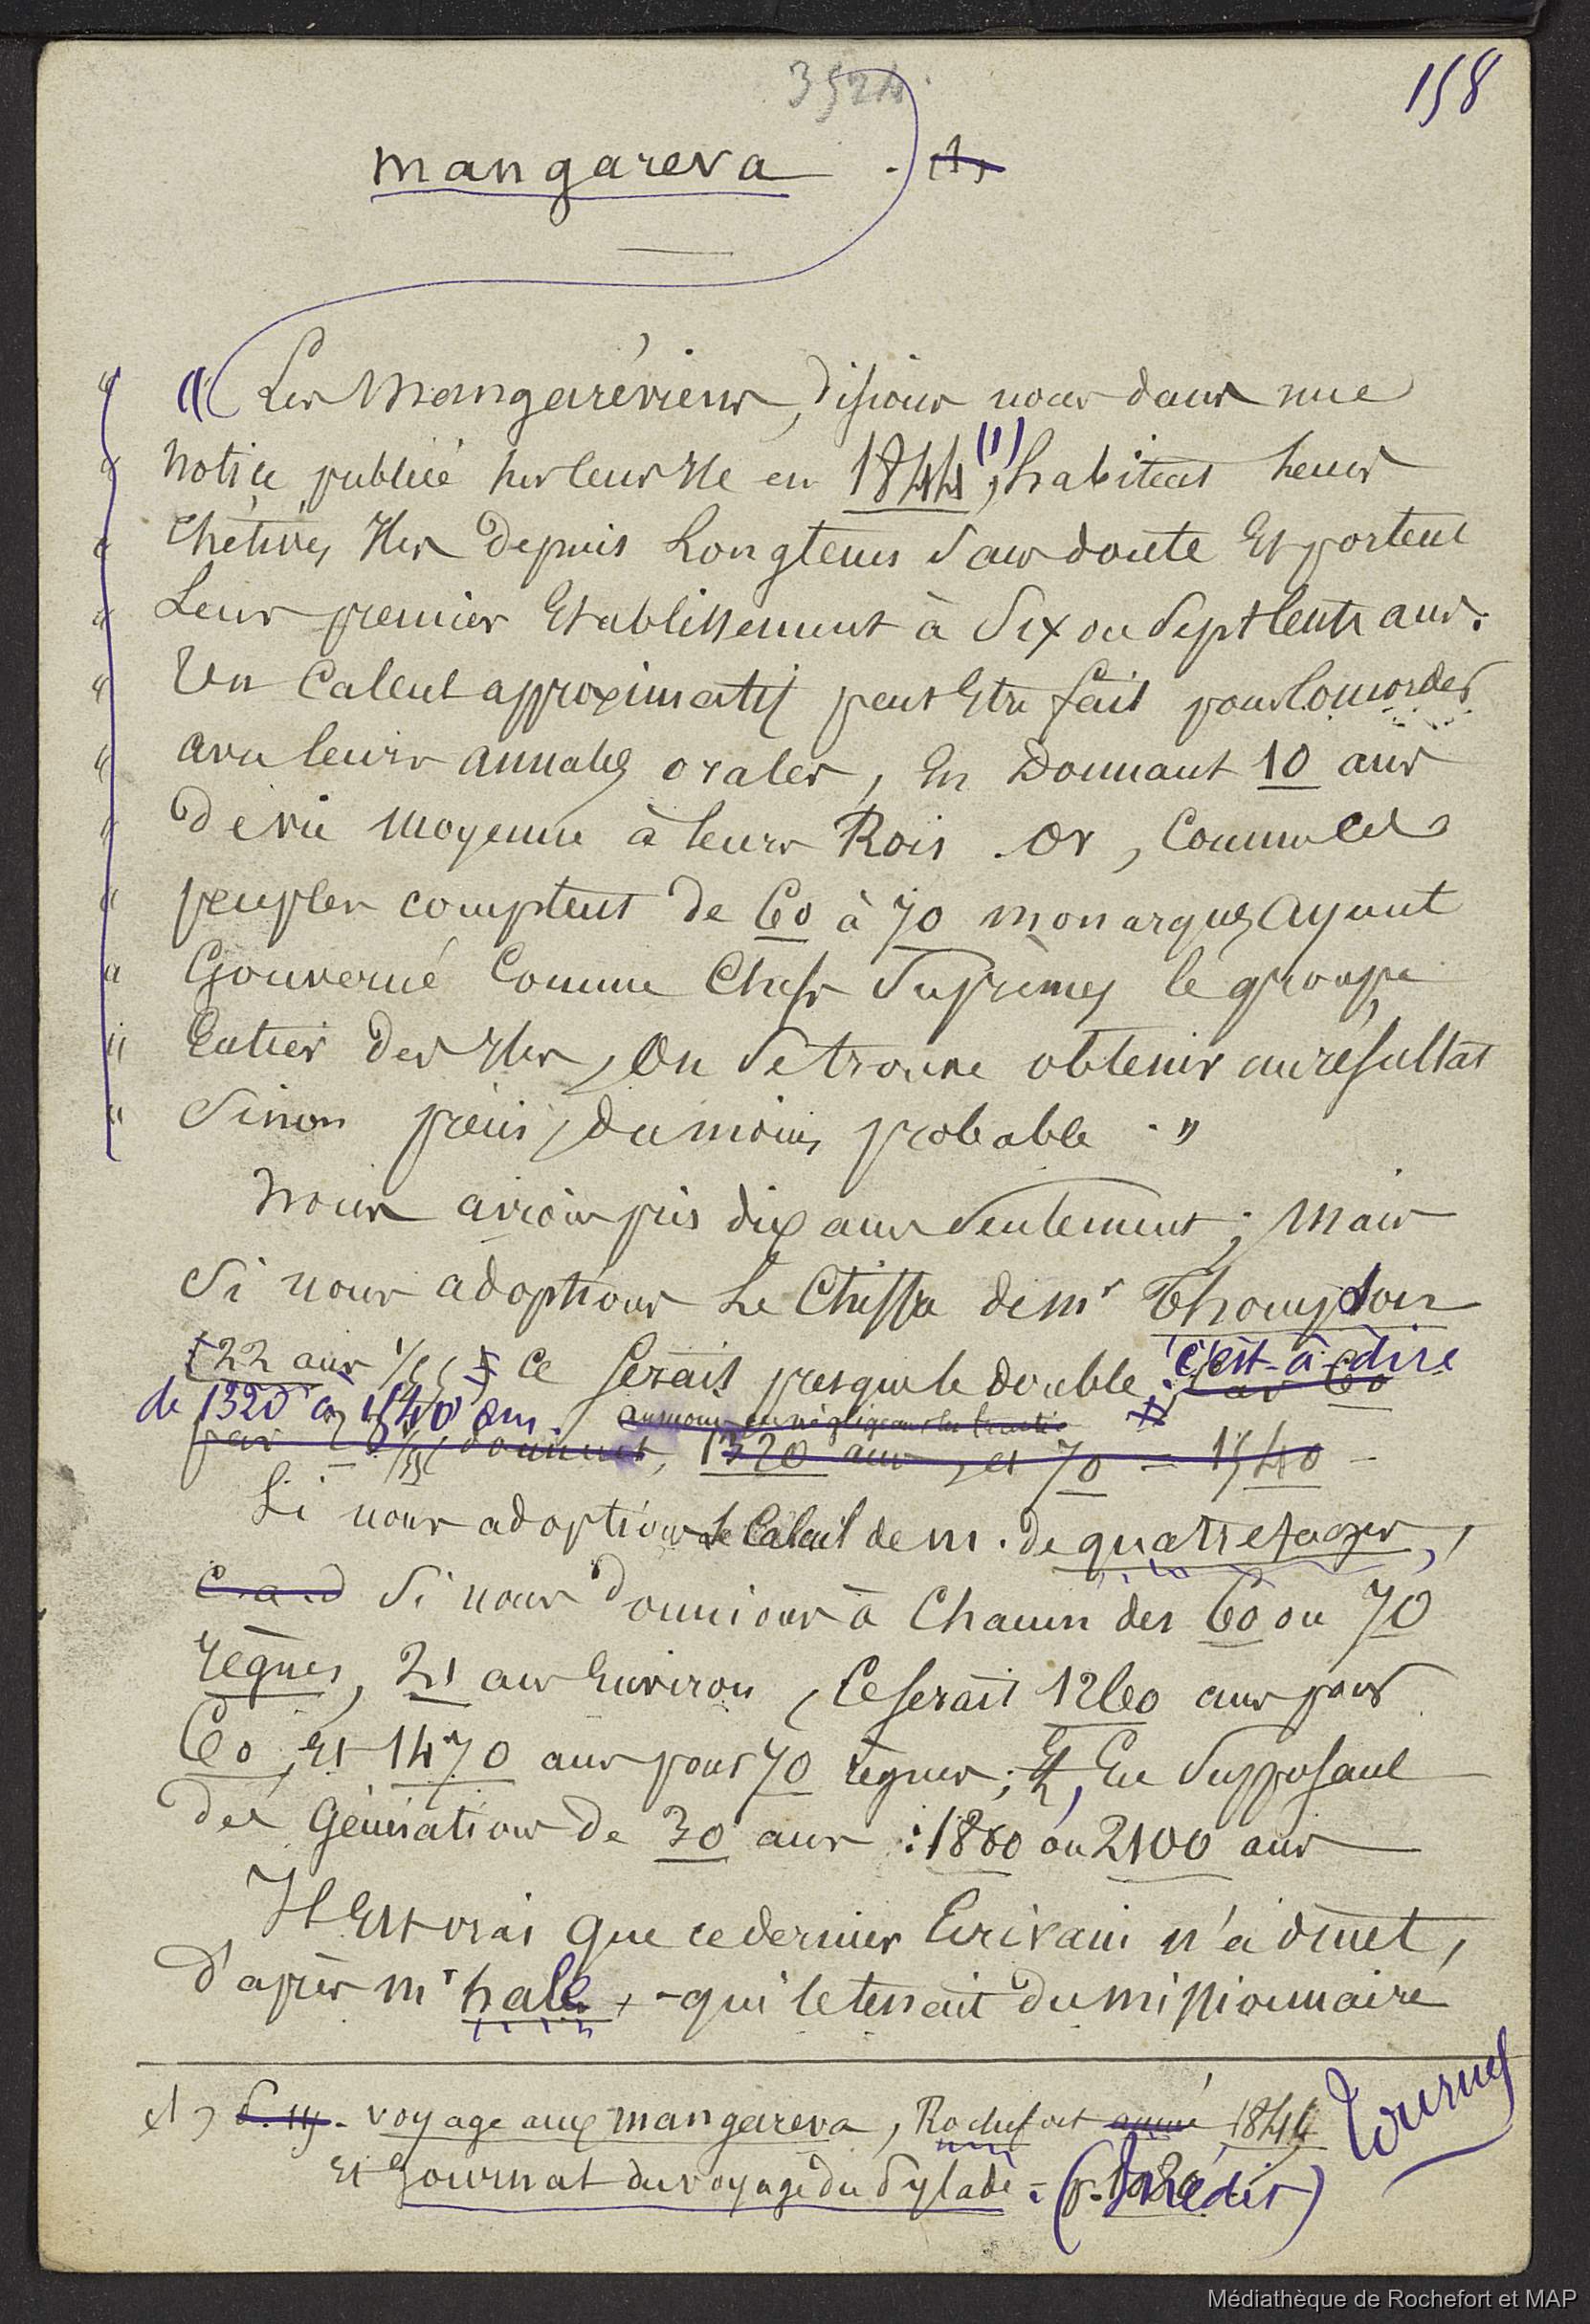 3524.
158
mangareva . (1)
" (" Les Mangaréviens, disions nous dans une
" notice publiée sur leur Ile en 1844 (1), habitent leurs
" chétives Iles depuis Longtems sans doute Et portent
" Leur premier Etablissement à Six ou Sept Cents ans.
" Un Calcul approximatif peut Etre fait pour Concorder
" avec leurs annales orales, En Donnant 10 ans
" de vie moyenne à leurs Rois. Or, Comme ces
" peuples comptent de 60 à 70 monarques ayant
" Gouverné Comme Chefs Suprèmes le groupe
" Entier des Iles, On se trouve obtenir un résultat
" Sinon précis, du moins probable. "
Nous avions pris dix ans Seulement ; Mais
Si nous adoptions Le Chiffre de Mr Thompson
(22 ans ce serait presque le double c'est-à-dire
de 1320 à 1540 ans.
au moins en négligeant les
par donnent, 1320 ans, et 70 = 1540 -
Si nous adoptions Le Calcul de M. de quatrefages,
c. a. d Si nous donnions à Chacun des 60 ou 70
règnes, 21 ans Environ, Ce serait 1260 ans pour
60, Et 1470 ans pour 70 règnes ; Et, En Supposant
des Générations de 30 ans : 1800 ou 2100 ans
Il Est vrai que ce dernier Ecrivain n'admet,
d'après Mr hale, - qui le tenait du missionnaire
(1) voyage aux mangareva, Rochefort année 1844
Et Journal du voyage du Pylade. (Inédit)
tournez
Médiathèque de Rochefort et MAP